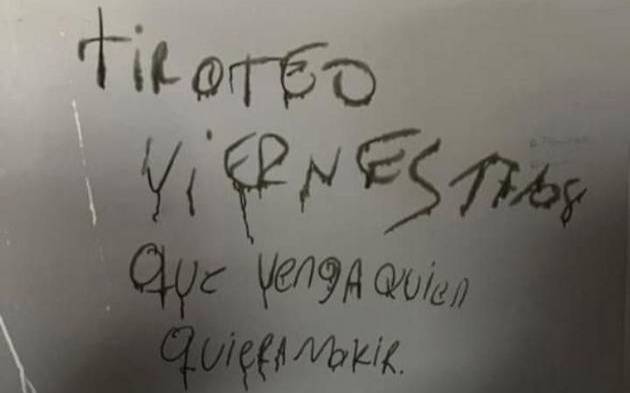 TiROTEO
ViERNES 17/08
QUE VENGA QUIEN
QUIERA MORIR.